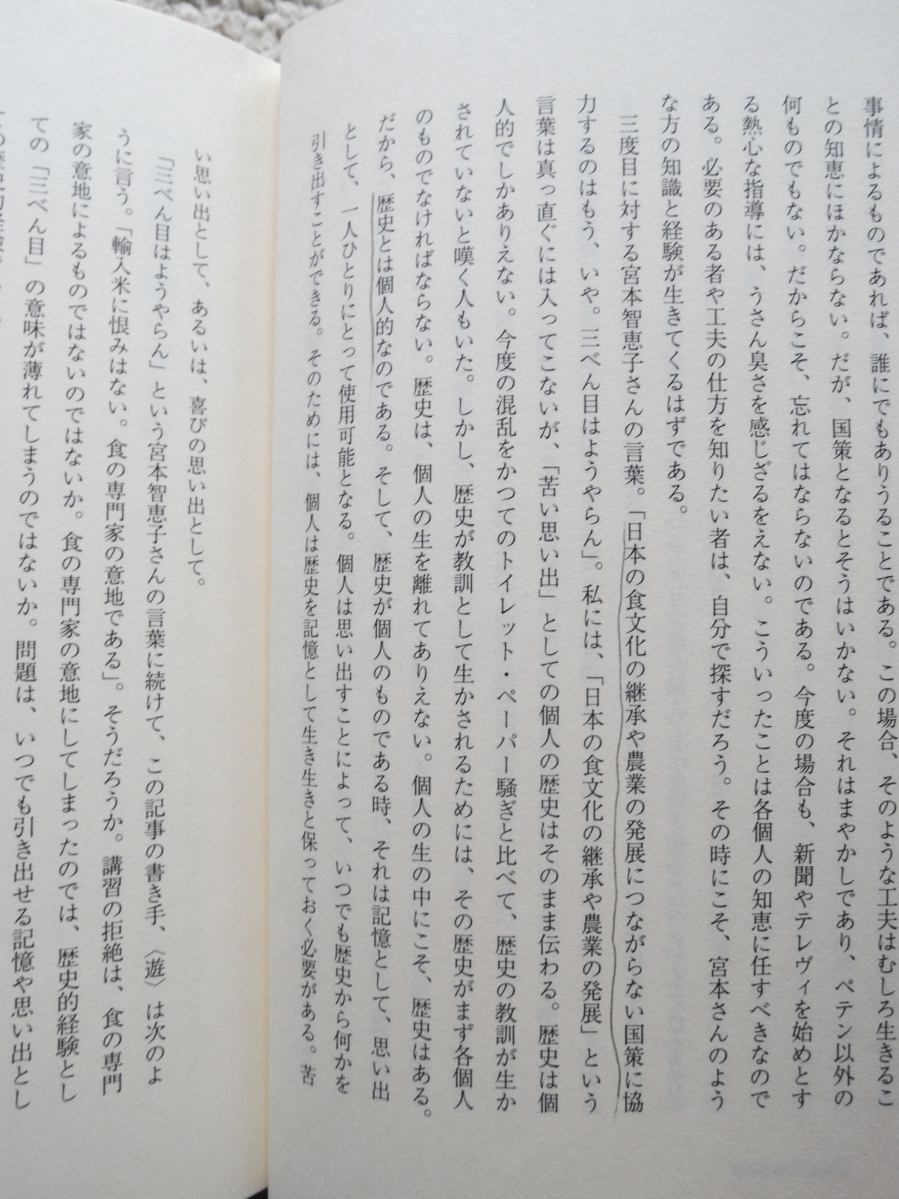 事情によるものであれば、誰にでもありうることである。この場合、そのような工夫はむしろ生きるこ
との知恵にほかならない。だが、国策となるとそうはいかない。それはまやかしであり、ペテン以外の
何ものでもない。だからこそ、忘れてはならないのである。今度の場合も、新聞やテレヴィを始めとす
る熱心な指導には、うさん臭さを感じざるをえない。こういったことは各個人の知恵に任すべきなので
ある。必要のある者や工夫の仕方を知りたい者は、自分で探すだろう。その時にこそ、宮本さんのよう
な方の知識と経験が生きてくるはずである。
三度目に対する宮本智恵子さんの言葉。「日本の食文化の継承や農業の発展につながらない国策に協
力するのはもう、いや。三べん目はようやらん」。私には、「日本の食文化の継承や農業の発展」という
言葉は真っ直ぐには入ってこないが、「苦い思い出」としての個人の歴史はそのまま伝わる。歴史は個
人的でしかありえない。今度の混乱をかつてのトイレット・ペーパー騒ぎと比べて、歴史の教訓が生か
されていないと嘆く人もいた。しかし、歴史が教訓として生かされるためには、その歴史がまず各個人
のものでなければならない。歴史は、個人の生を離れてありえない。個人の生の中にこそ、歴史はある。
だから、歴史とは個人的なのである。そして、歴史が個人のものである時、それは記憶として、思い出
として、一人ひとりにとって使用可能となる。個人は思い出すことによって、いつでも歴史から何かを
引き出すことができる。そのためには、個人は歴史を記憶として生き生きと保っておく必要がある。苦
い思い出として、あるいは、喜びの思い出として。
「三べん目はようやらん」という宮本智恵子さんの言葉に続けて、この記事の書き手、〈遊〉は次のよ
うに言う。「輸入米に恨みはない。食の専門家の意地である」。そうだろうか。講習の拒絶は、食の専門
家の意地によるものではないのではないか。食の専門家の意地にしてしまったのでは、歴史的経験とし
ての「三べん目」の意味が薄れてしまうのではないか。問題は、いつでも引き出せる記憶や思い出とし